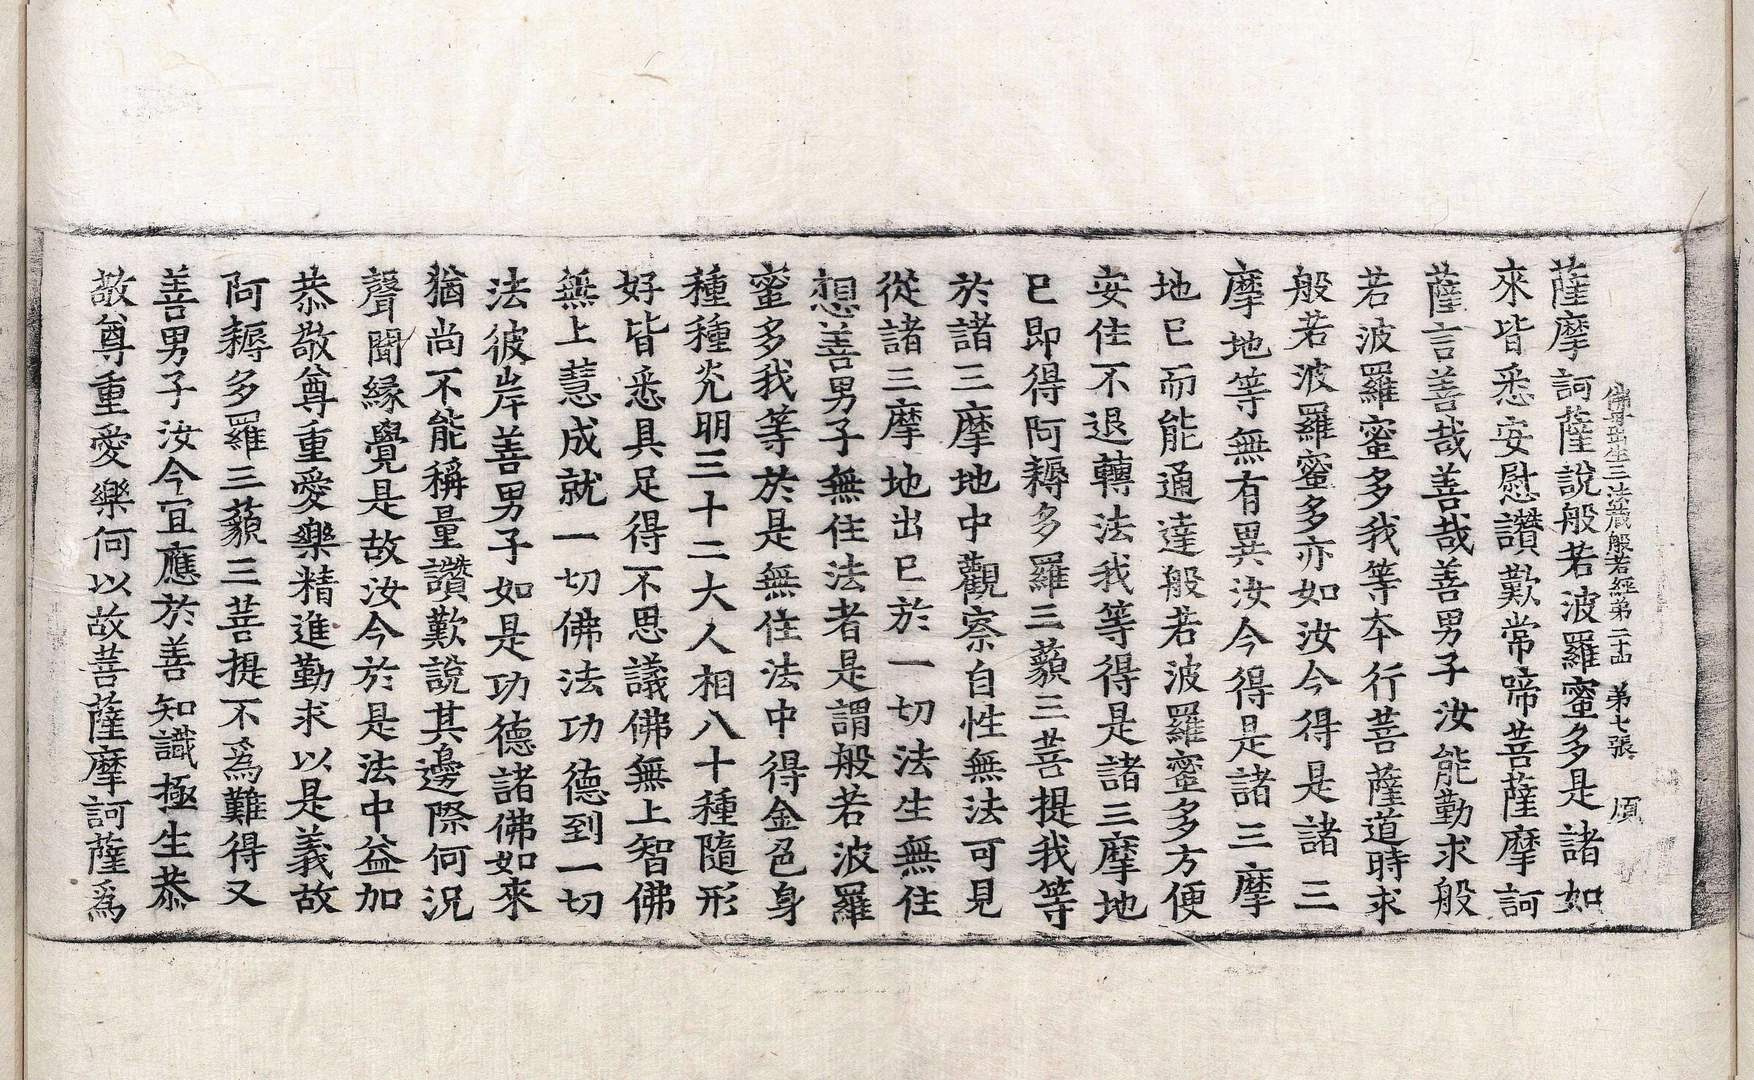 佛母出生三法藏般若經第二十四 第七張 傾
薩摩訶薩說般若波羅蜜多是諸如
來皆悉安慰讚歎常啼菩薩摩訶
薩言善哉善哉善男子汝能勤求般
若波羅蜜多我等本行菩薩道時求
般若波羅蜜多亦如汝今得是諸三
摩地等無有異汝今得是諸三摩
地已而能通達般若波羅蜜多方便
安住不退轉法我等得是諸三摩地
已即得阿耨多羅三藐三菩提我等
於諸三摩地中觀察自性無法可見
從諸三摩地出已於一切法生無住
想善男子無住法者是謂般若波羅
蜜多我等於是無住法中得金色身
種種光明三十二大人相八十種隨形
好皆悉具足得不思議佛無上智佛
無上慧成就一切佛法功德到一切
法彼岸善男子如是功德諸佛如來
猶尚不能稱量讚歎說其邊際何況
聲聞緣覺是故汝今於是法中益加
恭敬尊重愛樂精進勤求以是義故
阿耨多羅三藐三菩提不爲難得又
善男子汝今宜應於善知識極生恭
敬尊重愛樂何以故菩薩摩訶薩爲